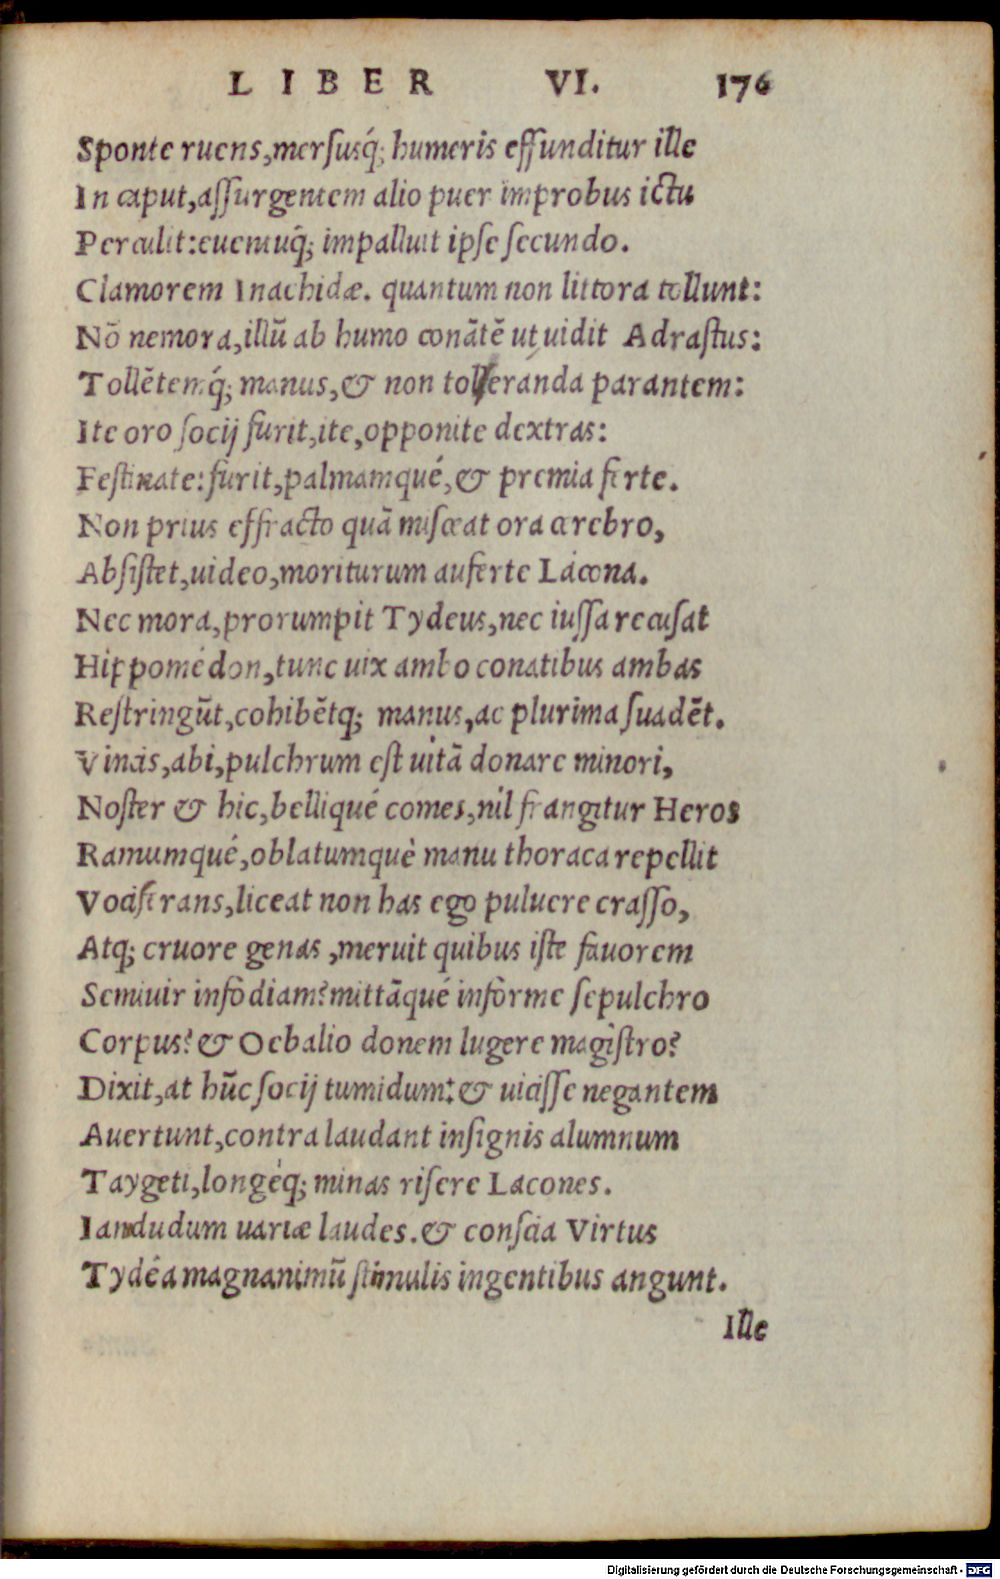 LIBER VI. 176
Sponte ruens,mersusq́; humeris effunditur ille
In caput,assurgentem alio puer improbus ictu
Perculit:euentuq́; impalluit ipse secundo.
Clamorem Inachidæ. quantum non littora tollunt:
Nō nemora,illū ab humo conātē ut uidit Adrastus:
Tollētemq́; manus,& non tolleranda parantem:
Ite oro socij furit,ite,opponite dextras:
Festinate:furit,palmamqué,& premia ferte.
Non prius effracto quā misceat ora cerebro,
Absistet,uideo,moriturum auferte Lácona.
Nec mora,prorumpit Tydeus,nec iussa recusat
Hippomédon,tunc uix ambo conatibus ambas
Restringūt,cohibētq; manus,ac plurima suadēt.
Vincis,abi,pulchrum est uitā donare minori,
Noster & hic,belliqué comes,nil frangitur Heros
Ramumqué,oblatumquè manu thoraca repellit
Vociferans,liceat non has ego puluere crasso,
Atq; cruore genas ,meruit quibus iste fauorem
Semiuir infodiam?mittāqué informe sepulchro
Corpus?& Oebalio donem lugere magistro?
Dixit,at hūc socij tumidum:& uicisse negantem
Auertunt,contra laudant insignis alumnum
Taygeti,longéq; minas risere Lacones.
Iamdudum uariæ laudes.& conscia Virtus
Tydéa magnanimū stimulis ingentibus angunt.
Ille
Digitalisierung gefördert durch die Deutsche Forschungsgemeinschaft - DFG